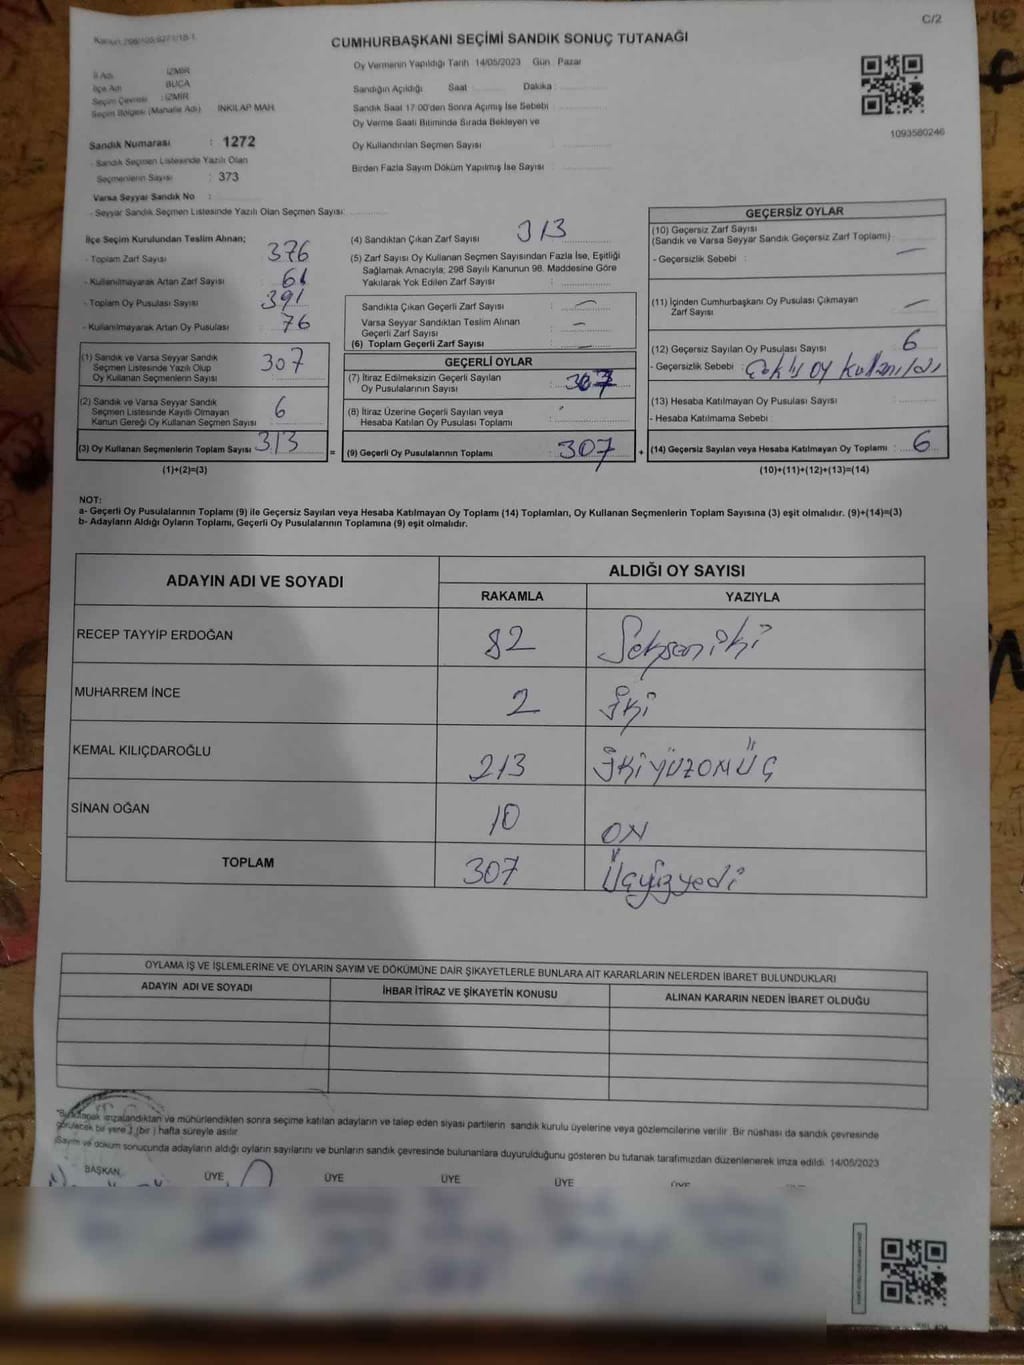 C/2
Kanun 298/105/6271/18-1
CUMHURBAŞKANI SEÇİMİ SANDIK SONUÇ TUTANAĞI
İl Adı : İZMİR
İlçe Adı : BUCA
Seçim Çevresi : İZMİR
Seçim Bölgesi (Mahalle Adı) INKILAP MAH.
Sandık Numarası : 1272
- Sandık Seçmen Listesinde Yazılı Olan
Seçmenlerin Sayısı : 373
Varsa Seyyar Sandık No :
- Seyyar Sandık Seçmen Listesinde Yazılı Olan Seçmen Sayısı:
Oy Vermenin Yapıldığı Tarih 14/05/2023 Gün : Pazar
Sandığın Açıldığı Saat Dakika :
Sandık Saat 17:00'den Sonra Açımış İse Sebebi :
Oy Verme Saati Bitiminde Sırada Bekleyen ve
Oy Kullandırılan Seçmen Sayısı :
Birden Fazla Sayım Döküm Yapılmış İse Sayısı :
1093580246
İlçe Seçim Kurulundan Teslim Alınan;
- Toplam Zarf Sayısı : 376
- Kullanılmayarak Artan Zarf Sayısı : 61
- Toplam Oy Pusulası Sayısı : 391
- Kullanılmayarak Artan Oy Pusulası : 76
(1) Sandık ve Varsa Seyyar Sandık
Seçmen Listesinde Yazılı Olup
Oy Kullanan Seçmenlerin Sayısı : 307
(2) Sandık ve Varsa Seyyar Sandık
Seçmen Listesinde Kayıtlı Olmayan
Kanun Gereği Oy Kullanan Seçmen Sayısı : 6
(3) Oy Kullanan Seçmenlerin Toplam Sayısı : 313
(1)+(2)=(3)
=
(4) Sandıktan Çıkan Zarf Sayısı : 313
(5) Zarf Sayısı Oy Kullanan Seçmen Sayısından Fazla İse, Eşitliği
Sağlamak Amacıyla; 298 Sayılı Kanunun 98. Maddesine Göre
Yakılarak Yok Edilen Zarf Sayısı :
Sandıkta Çıkan Geçerli Zarf Sayısı : —
Varsa Seyyar Sandıktan Teslim Alınan
Geçerli Zarf Sayısı : —
(6) Toplam Geçerli Zarf Sayısı : —
GEÇERLİ OYLAR
(7) İtiraz Edilmeksizin Geçerli Sayılan
Oy Pusulalarının Sayısı : 307
(8) İtiraz Üzerine Geçerli Sayılan veya
Hesaba Katılan Oy Pusulası Toplamı :
(9) Geçerli Oy Pusulalarının Toplamı : 307
+
GEÇERSİZ OYLAR
(10) Geçersiz Zarf Sayısı
(Sandık ve Varsa Seyyar Sandık Geçersiz Zarf Toplamı) :
- Geçersizlik Sebebi : —
(11) İçinden Cumhurbaşkanı Oy Pusulası Çıkmayan
Zarf Sayısı : —
(12) Geçersiz Sayılan Oy Pusulası Sayısı : 6
- Geçersizlik Sebebi : Çoklu oy kullanıldı
(13) Hesaba Katılmayan Oy Pusulası Sayısı :
- Hesaba Katılmama Sebebi :
(14) Geçersiz Sayılan veya Hesaba Katılmayan Oy Toplamı : 6
(10)+(11)+(12)+(13)=(14)
NOT:
a- Geçerli Oy Pusulalarının Toplamı (9) ile Geçersiz Sayılan veya Hesaba Katılmayan Oy Toplamı (14) Toplamları, Oy Kullanan Seçmenlerin Toplam Sayısına (3) eşit olmalıdır. (9)+(14)=(3)
b- Adayların Aldığı Oyların Toplamı, Geçerli Oy Pusulalarının Toplamına (9) eşit olmalıdır.
ADAYIN ADI VE SOYADI ALDIĞI OY SAYISI
RAKAMLA YAZIYLA
RECEP TAYYİP ERDOĞAN 82 Seksen iki
MUHARREM İNCE 2 İki
KEMAL KILIÇDAROĞLU 213 İKİYÜZONÜÇ
SİNAN OĞAN 10 ON
TOPLAM 307 Üçyüzyedi
OYLAMA İŞ VE İŞLEMLERİNE VE OYLARIN SAYIM VE DÖKÜMÜNE DAİR ŞİKAYETLERLE BUNLARA AİT KARARLARIN NELERDEN İBARET BULUNDUKLARI
ADAYIN ADI VE SOYADI İHBAR İTİRAZ VE ŞİKAYETİN KONUSU ALINAN KARARIN NEDEN İBARET OLDUĞU
*Bu tutanak imzalandıktan ve mühürlendikten sonra seçime katılan adayların ve talep eden siyasi partilerin sandık kurulu üyelerine veya gözlemcilerine verilir. Bir nüshası da sandık çevresinde
görülecek bir yere 1 (bir ) hafta süreyle asılır.
Sayım ve döküm sonucunda adayların aldığı oyların sayılarını ve bunların sandık çevresinde bulunanlara duyurulduğunu gösteren bu tutanak tarafımızdan düzenlenerek imza edildi. 14/05/2023
BAŞKAN ÜYE ÜYE ÜYE ÜYE ÜYE